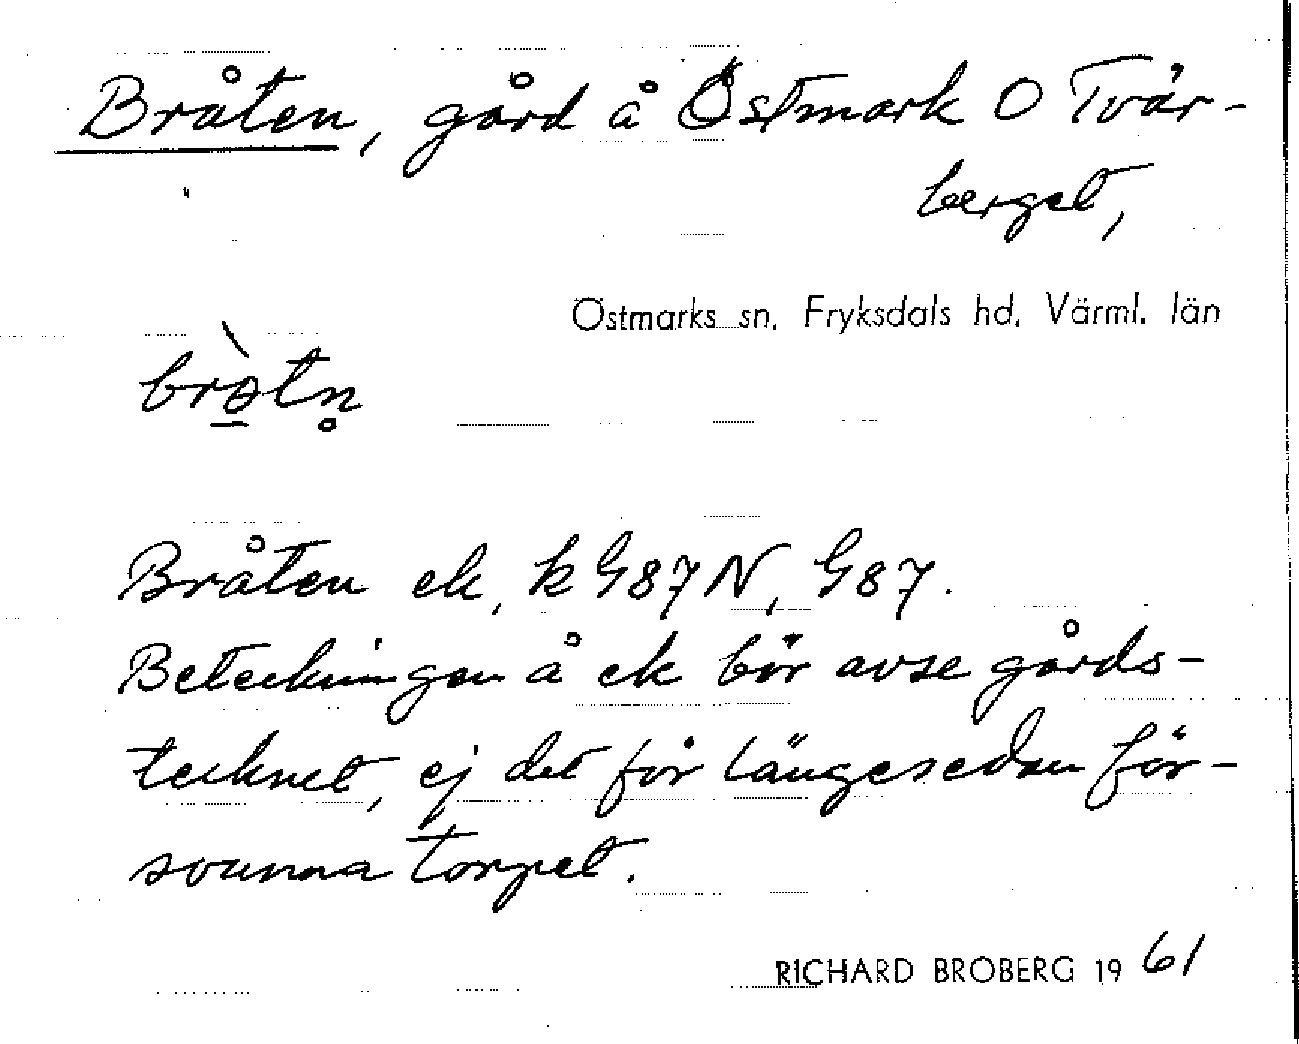 Bråten, gård å Östmark O Tvär-
berget,
Östmarks sn, Fryksdals hd, Värml. län
brò̱tn̥
Bråten ek, k G87N, G87.
Beteckningen å ek bör avse gårds-
tecknet, ej det för längesedan för-
svunna torpet.
RICHARD BROBERG 1961